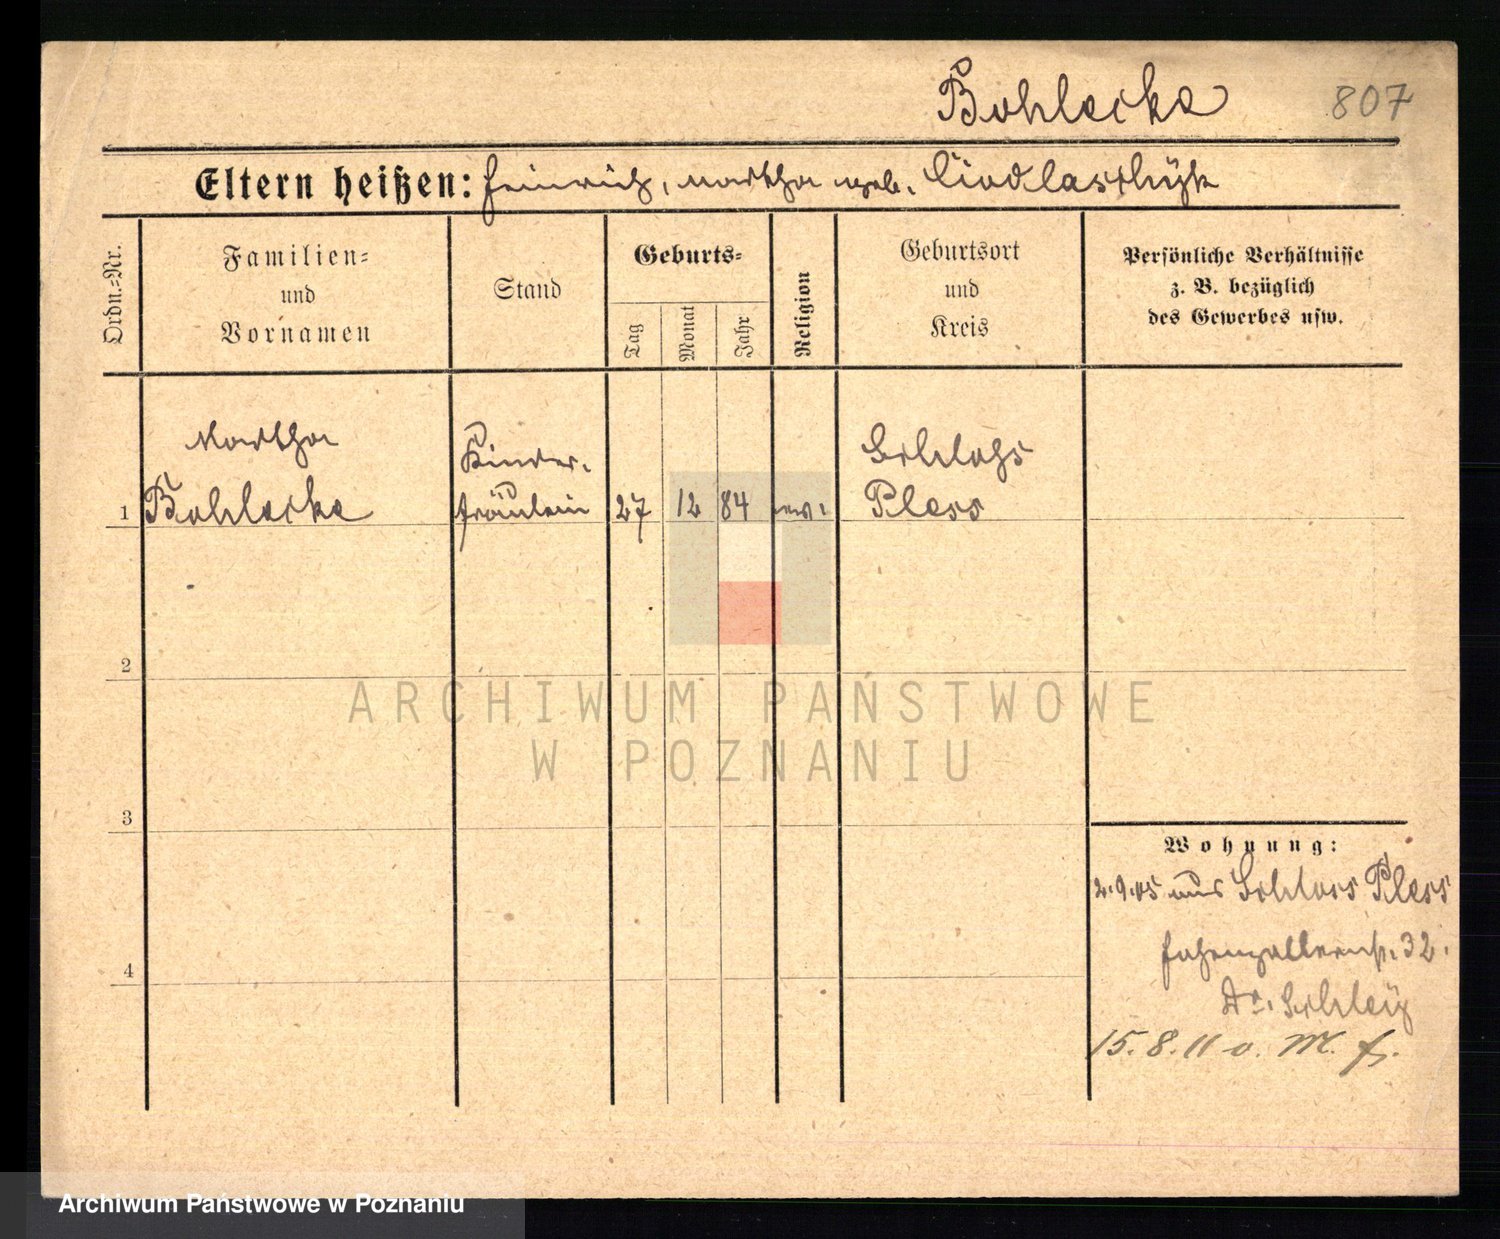 Bohlecke 807
Eltern heißen: Heinrich, Martha geb.
Ordn.-Nr.
Familien-
und
Vornamen
Stand
Geburts-
Tag
Monat
Jahr
Religion
Geburtsort
und
Kreis
Persönliche Verhältnisse
z. B. bezüglich
des Gewerbes usw.
Martha
Kinder-
Schloss
1 Bohlecke fräulein 27 12 84 ev. Pless
2
3
4
Wohnung:
2.9.05 aus Schloss Pless
Hohenzollernstr. 32.
Dr. Schley
15.8.11 v. M.
ARCHIWUM PAŃSTWOWE
W POZNANIU
Archiwum Państwowe w Poznaniu